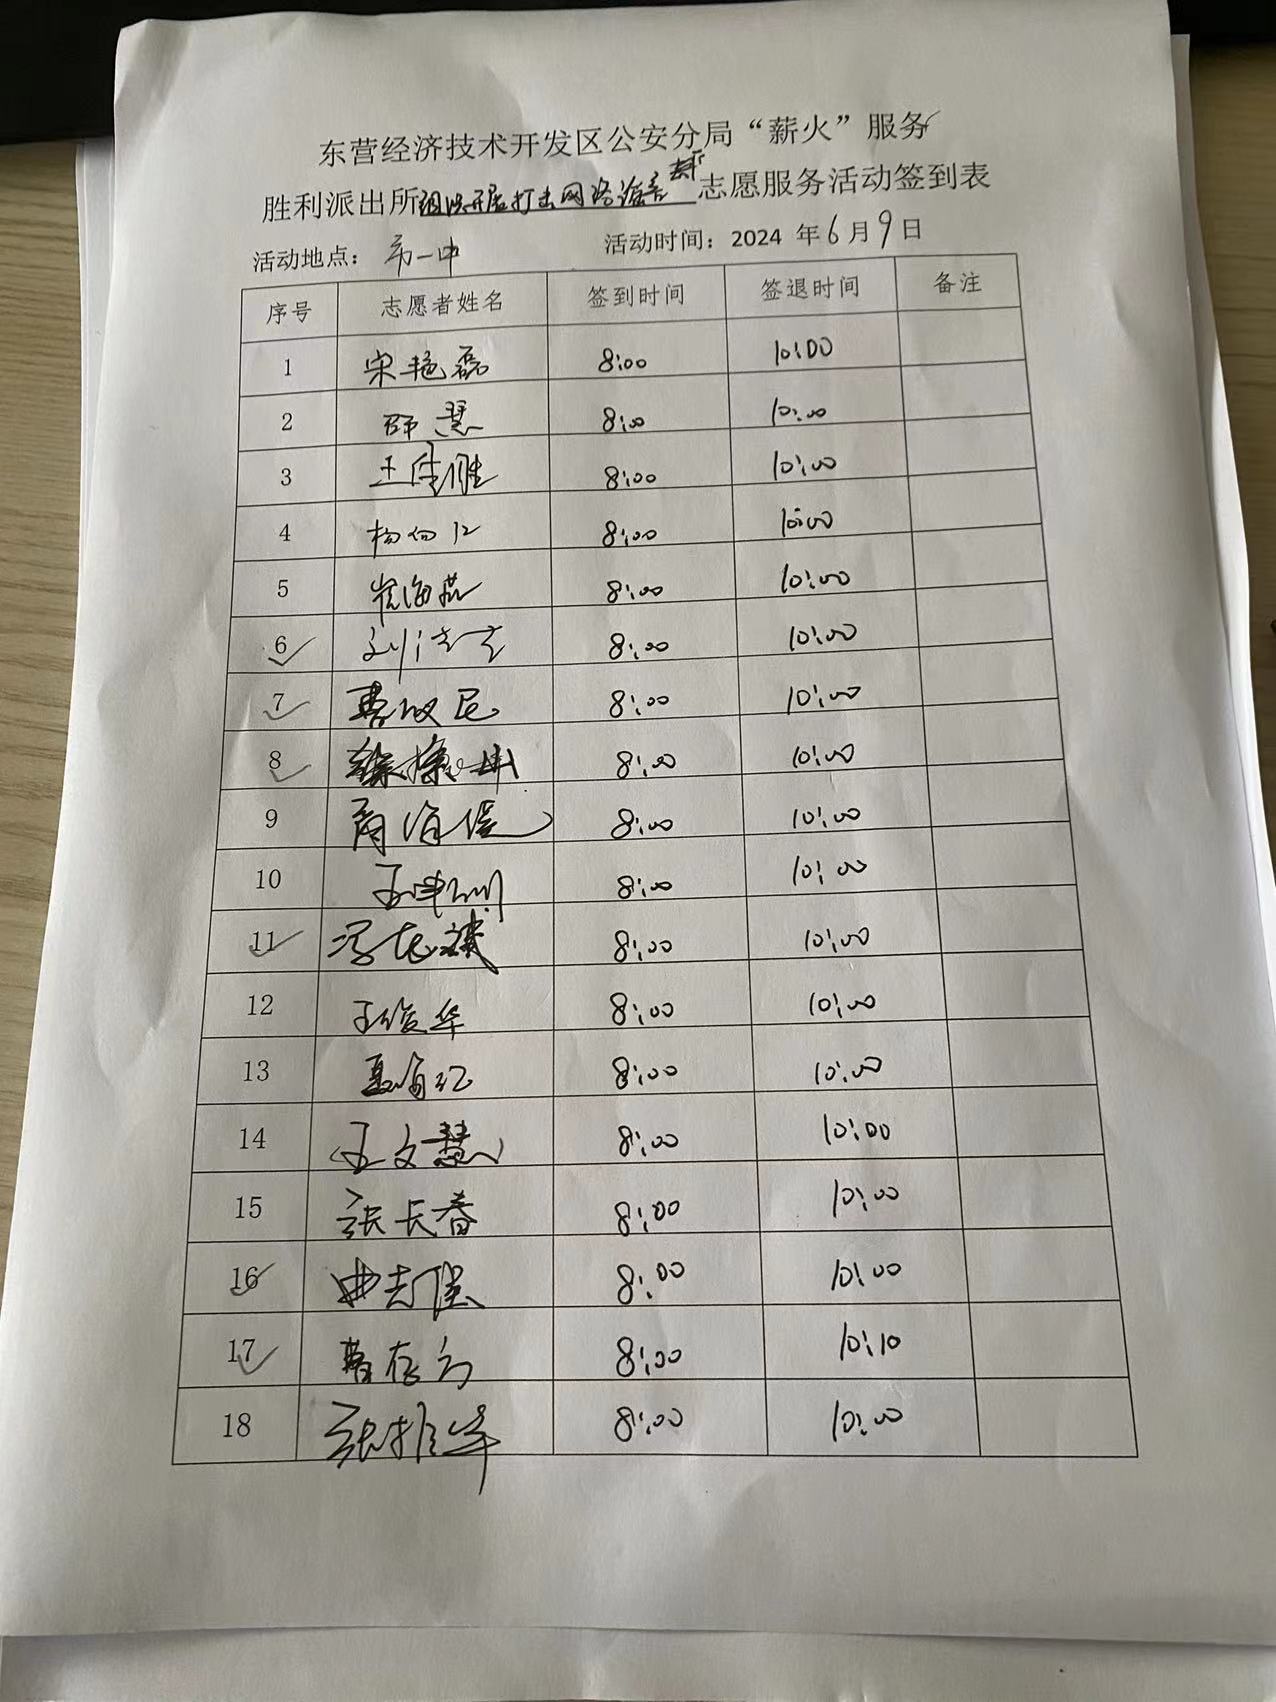 东营经济技术开发区公安分局“薪火”服务
胜利派出所组织开展打击网络谣言志愿服务活动签到表
活动地点：市一中 活动时间：2024 年6月9日
序号 志愿者姓名 签到时间 签退时间 备注
1 宋艳磊 8:00 10:00
2 邵慧 8:00 10:00
3 8:00 10:00
4 8:00 10:00
5 崔海燕 8:00 10:00
6 8:00 10:00
7 8:00 10:00
8 8:00 10:00
9 8:00 10:00
10 8:00 10:00
11 8:00 10:00
12 王俊华 8:00 10:00
13 8:00 10:00
14 王文慧 8:00 10:00
15 张长春 8:00 10:00
16 曲志强 8:00 10:00
17 8:00 10:10
18 8:00 10:00